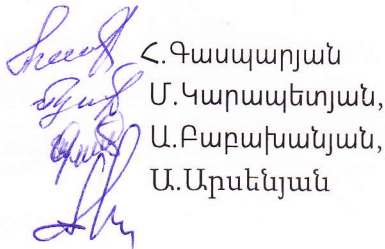 Հ.Գասպարյան
Մ.Կարապետյան,
Ա.Բաբախանյան,
Ա.Արսենյան